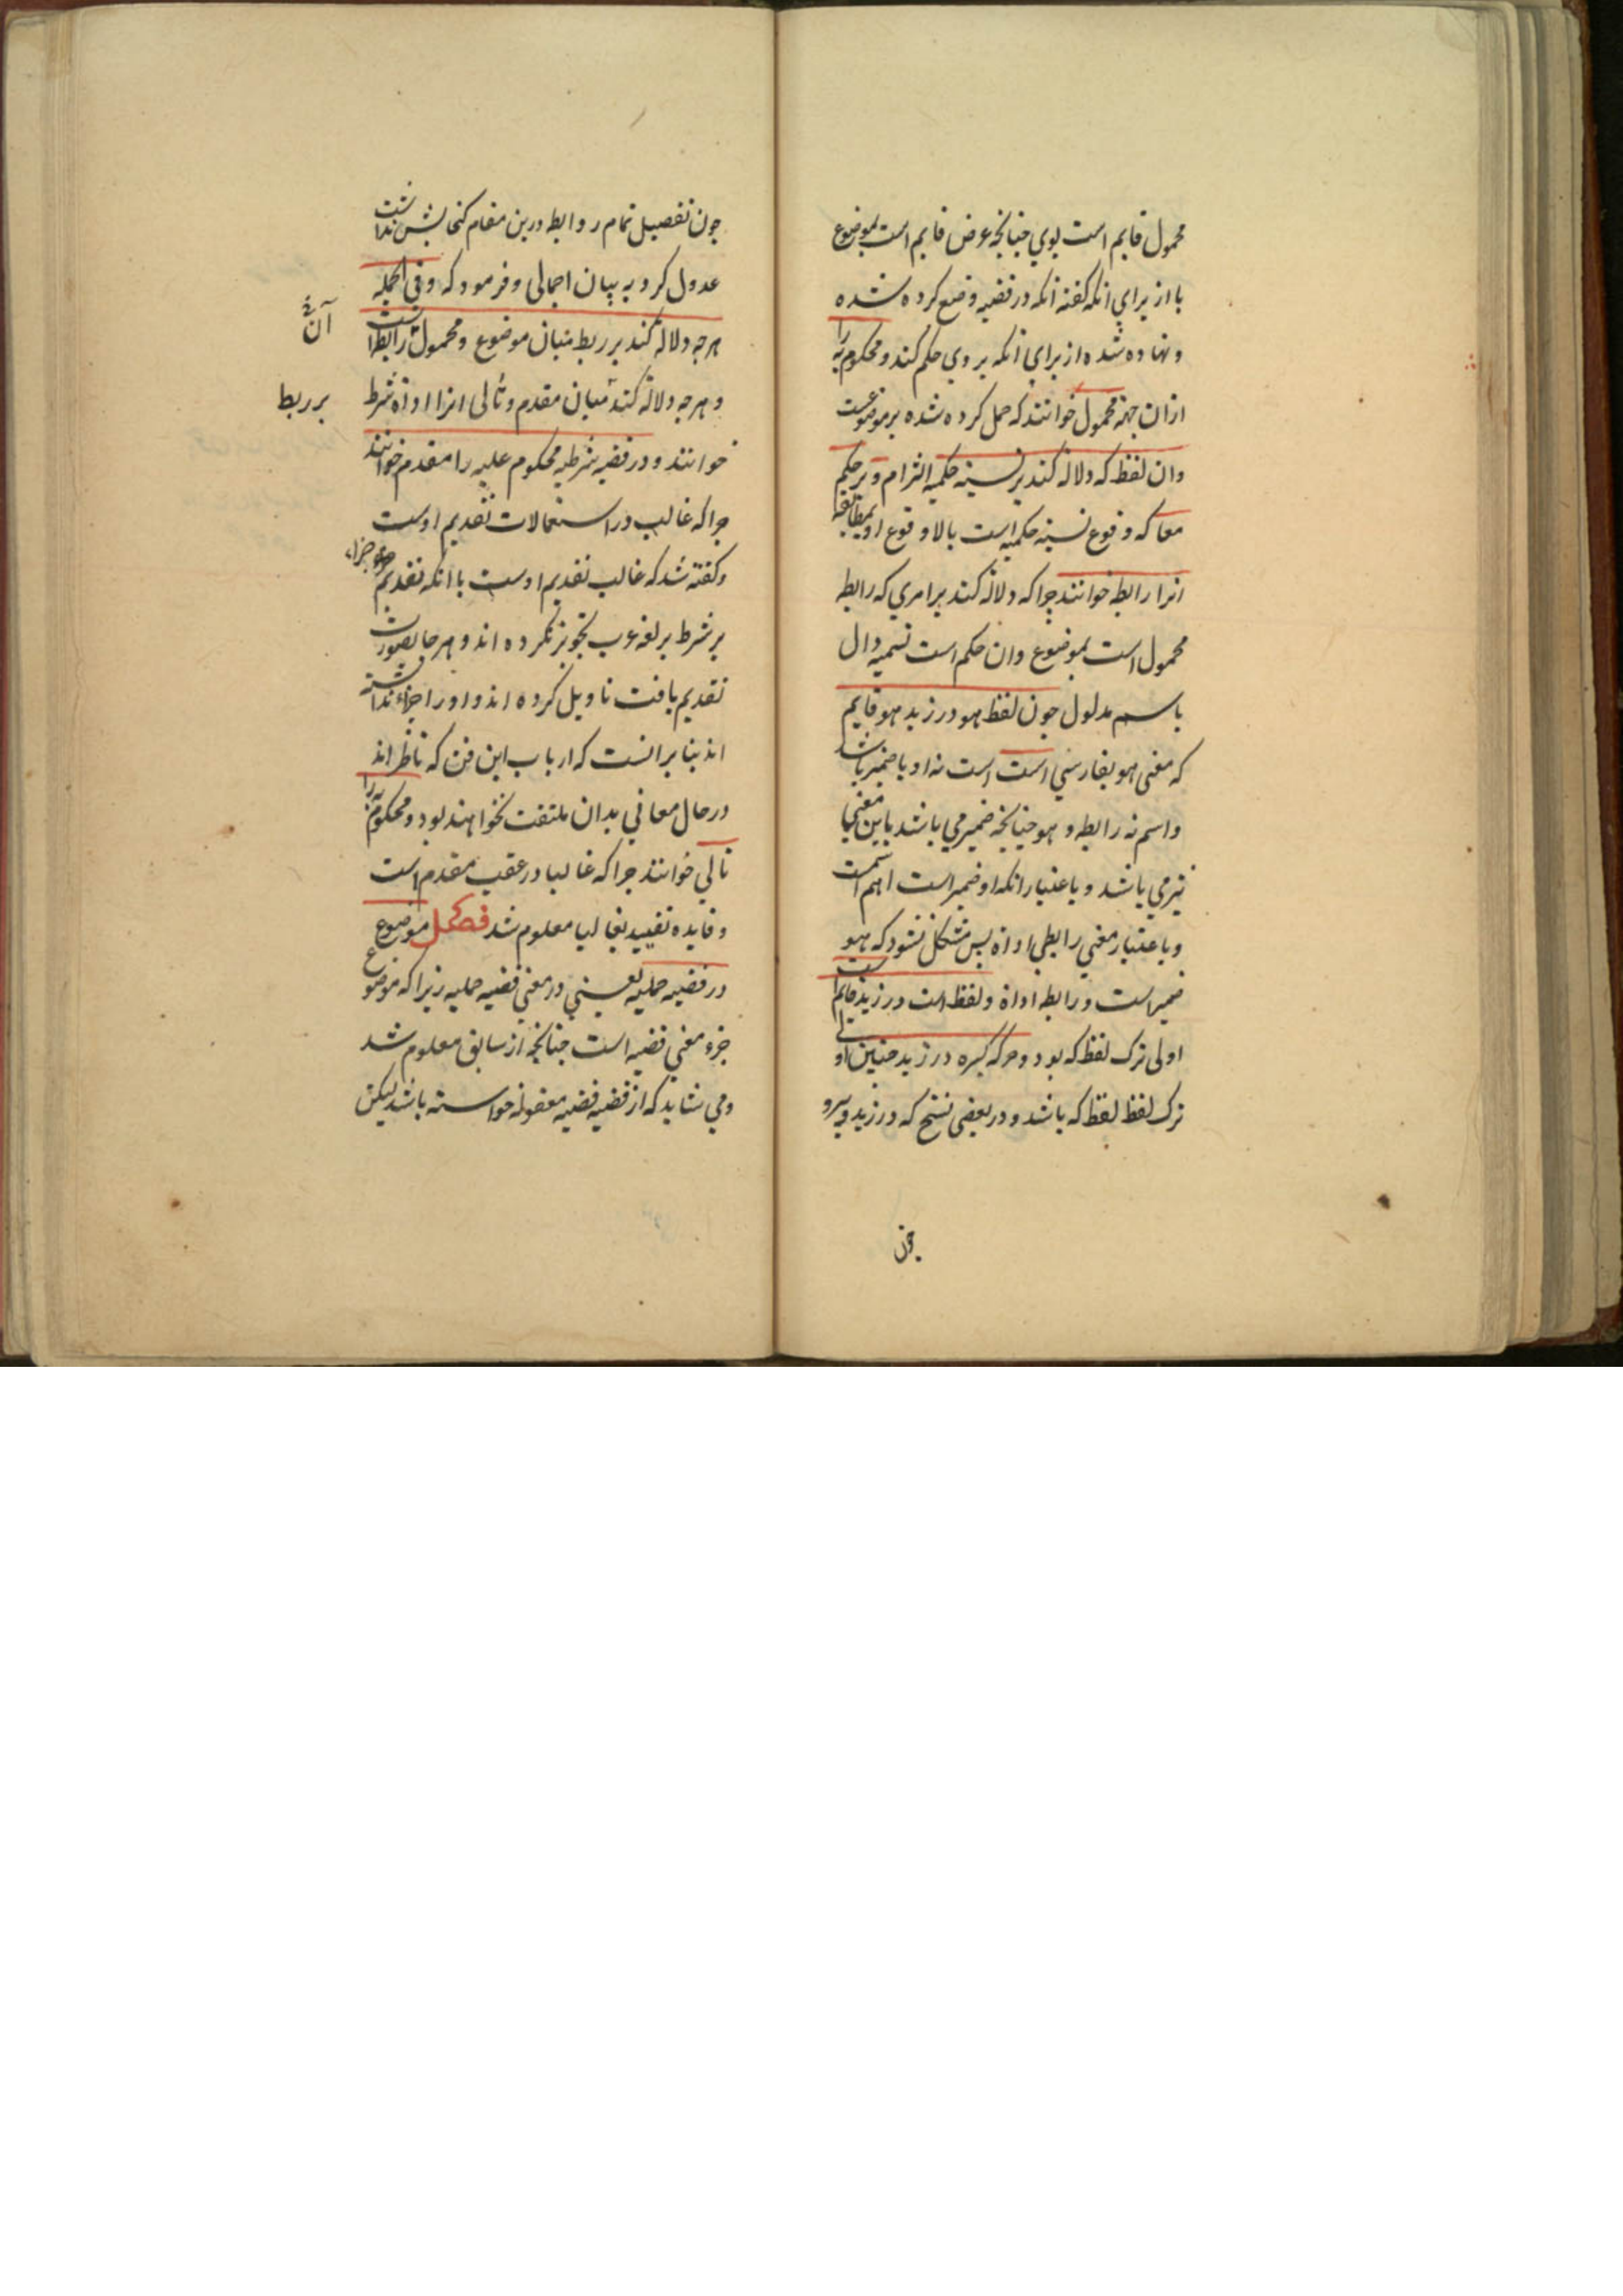 محمول قایم است بوی چنانچه عرض قایم است بموضوع
یا از برای انکه کفته انکه در قضیه وضع کرده شده
و نهاده شده از برای انکه بروی حکم کنند و محکوم به را
ازان جهة محمول خوانند که حمل کرده شده بر موضوعست
وان لفظ که دلالة کند بر نسبة حکمیه التزام و بر حکم
معا که وقوع نسبة حکمیه است یا لا وقوع او بمطابقه
انرا رابطه خوانند چرا که دلالة کند بر امری که رابطه
محمول است بموضوع وان حکم است تسمیه دال
باسم مدلول چون لفظ هو در زید هو قایم
که معنی هو بفارسی است است نه او یا ضمیر باشد
واسم نه رابطه و هو چنانچه ضمیر می باشد باین معنی
نیز می باشد و باعتبار انکه او ضمیر است اسم است
وباعتبار معنی رابطی اداة پس مشکل نشود که هو
ضمیر است و رابطه اداة و لفظ است در زید قایم است
اولی ترک لفظ که بود و حرکه کسره در زید چنین اولی
ترک لفظ لفظ که باشد و در بعضی نسخ که در زید
چون
چون تفصیل تمام روابط درین مقام کنجایش نداشت
عدول کرد به بیان اجمالی و فرمود که وفی الجمله
هرچه دلالة کند بر ربط میان موضوع و محمول آن رابطه است
و هرچه دلالة کند بر ربط میان مقدم و تالی انرا اداة شرط
خوانند و در قضیه شرطیه محکوم علیه را مقدم خوانند
چرا که غالب در استعمالات تقدیم اوست
و کفته شد که غالب تقدیم اوست با انکه تقدیم جزاء
بر شرط بر لغة عرب تجویز نکرده اند و هر جا بصورت
تقدیم یافت تاویل کرده اند و او را جزاء نداشته
اند بنا بر انست که ارباب این فن که ناظر اند
در حال معانی بدان ملتفت نخواهند بود و محکوم به را
تالی خوانند چرا که غالبا در عقب مقدم است
و فایده تقیید بغالبا معلوم شد فصل موضوع
در قضیه حملیه یعنی در معنی قضیه حملیه زیرا که موضوع
جزء معنی قضیه است چنانچه از سابق معلوم شد
و می شاید که از قضیه قضیه معقوله خواسته باشد لیکن